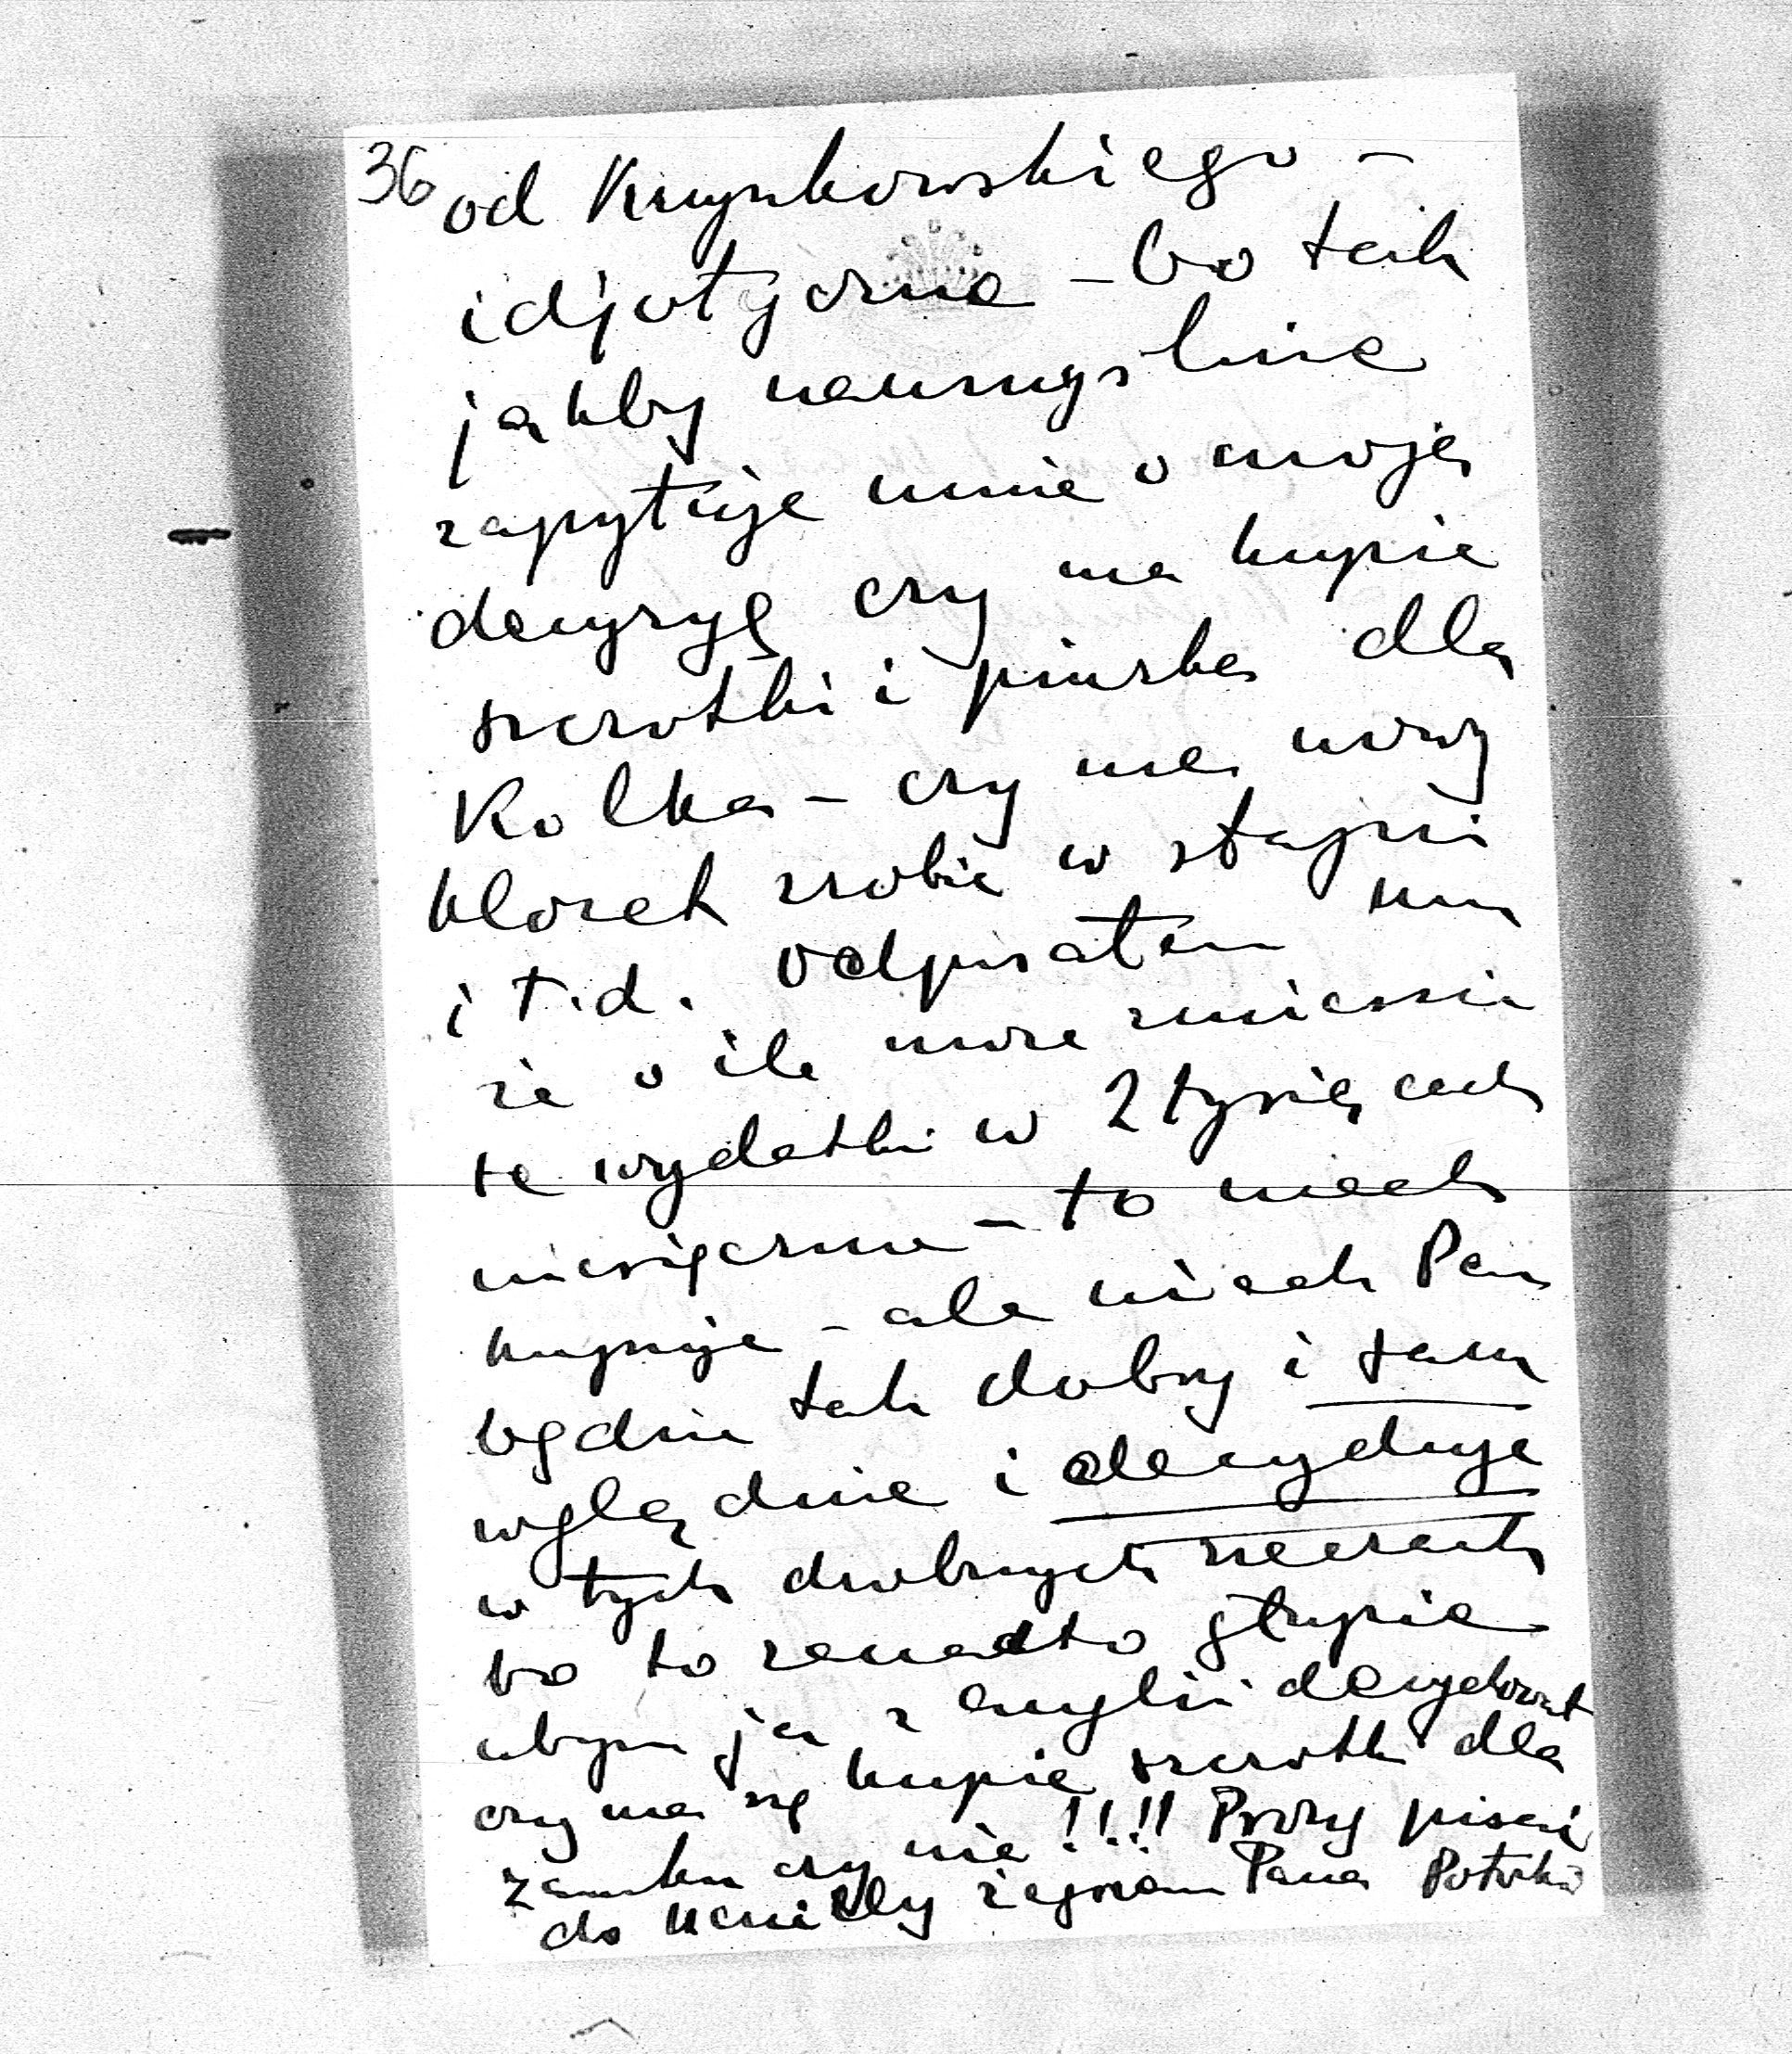 36 od Krzynkowskiego –
idjotyczne – bo tak
jakby naumyślnie
zapytuje mnie o moją
decyzyę czy ma kupić
szczotki i piurka dla
Kolka – czy ma nowy
klozek zrobić w stajni
i t.d. Odpisałem mu
że o ile może zmieścić
te wydatki w 2 tysiącach
miesięcznie – to niech
kupuje – ale niech Pan
będzie tak dobry i sam
wglądnie i decyduje
w tych drobnych rzeczach
bo to zanadto głupie
abym ja z Anglii decydował
czy ma się kupić szczotki dla
zamku czy nie !!!! Proszę pisać
do żegnam Pana Potocki